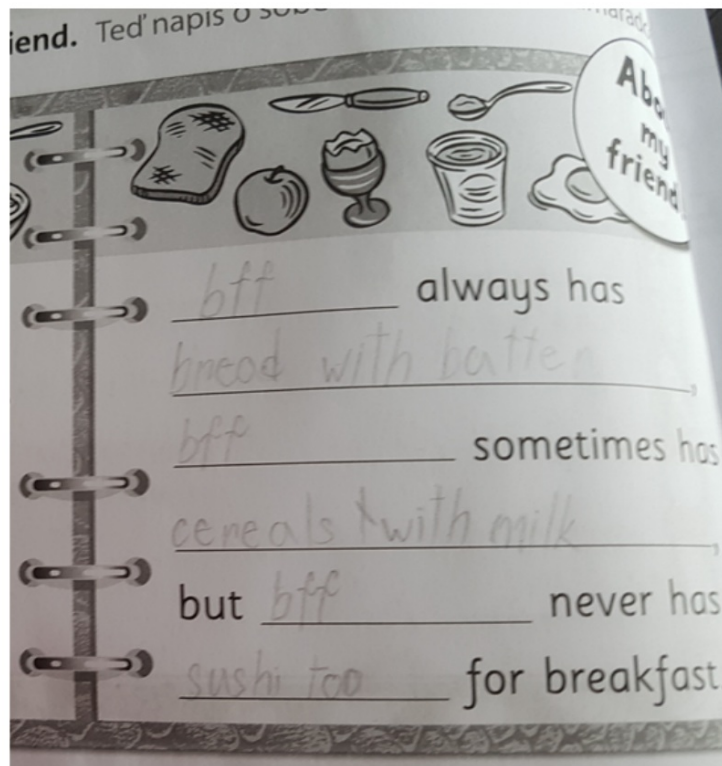 iend. Teď napiš o
About
my
friend
bff always has
breod with batter,
bff sometimes has
cereals with milk,
but bff never has
sushi too for breakfast